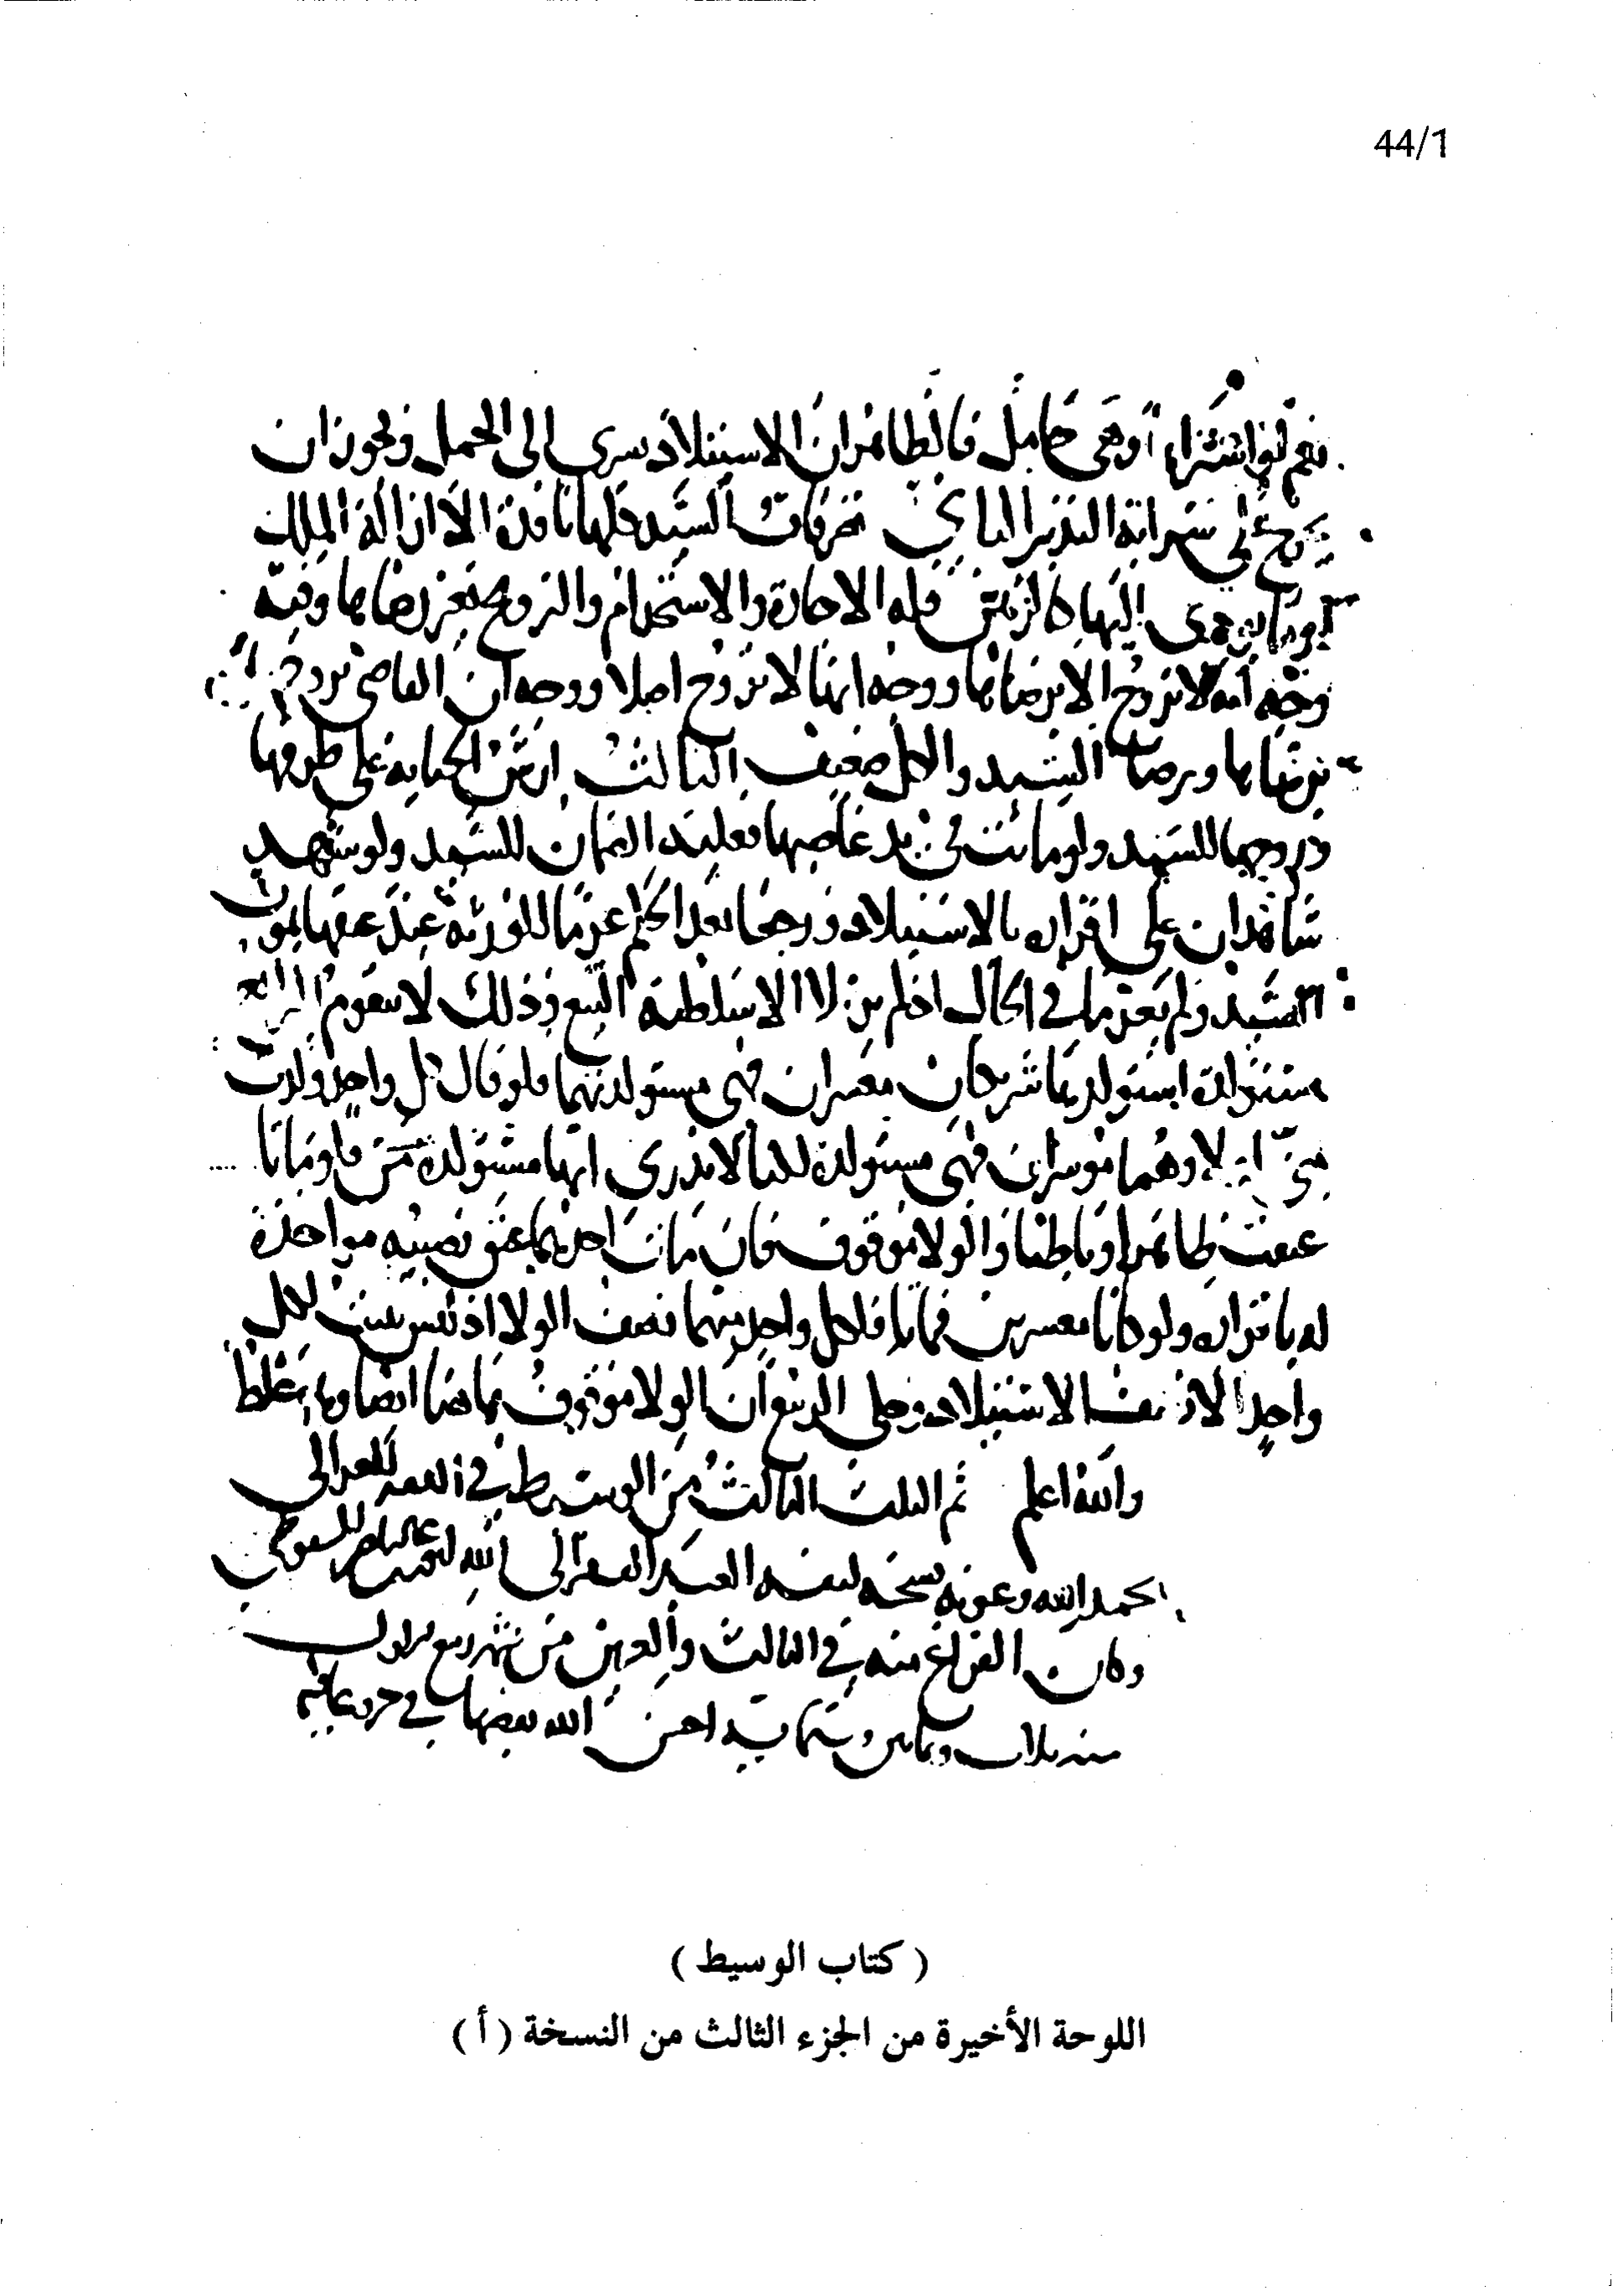 44/1
نعم لو اشتراها وهي حامل فالظاهر ان الاستيلاد يسري الى الحمل ويجوز ان
يخرج على سراية التدبير الثاني تصرفات السيد كلها نافذة الا ازالة الملك
او ما يودى اليها كالرهن فله الاجارة والاستخدام والتزويج بغير رضاها وفيه
وجه انه لا تزوج الا برضاها ووجه انها لا تزوج اصلا ووجه ان القاضي يزوج
برضاها وبرضا السيد والكل ضعيف الثالث ارش الجناية على طرفها
وزوجها للسيد ولو ماتت في يد غاصبها فعليه الضمان للسيد ولو شهد
شاهدان على اقراره بالاستيلاد ورجعا بعد الحكم غرما للورثة عند عتقها بموت
السيد ولم يغرما في الحال اذ لم يزيلا الا سلطنة البيع وذلك لا يتقوم الرابع
مستولدة استولدها شريكان معسران فهي مستولدتهما فلو قال كل واحد ولدت
مني اولا وهما موسران فهي مستولدة لكنا لا ندري انها مستولدة من فلو ماتا
عتقت ظاهرا وباطنا والولا موقوف فان مات احدهما عتق نصيبه مواخذة
له باقراره ولو كانا معسرين فماتا فلكل واحد منهما نصف الولا اذ ليس يثبت لكل
واحد الا نصف الاستيلاد وحكى الربيع ان الولا موقوف هاهنا ايضا وهو غلط
والله اعلم تم الثلث الثالث من الوسيط في الفقه للغزالي
بحمد الله وعونه نسخه لنفسه العبد الفقير الى الله
وكان الفراغ منه في الثالث والعشرين من شهر ربيع الاول
سنه ثلاث وثمانين وستمائة احسن الله تقضيها في خير وعافية
( كتاب الوسيط )
اللوحة الأخيرة من الجزء الثالث من النسخة ( أ )